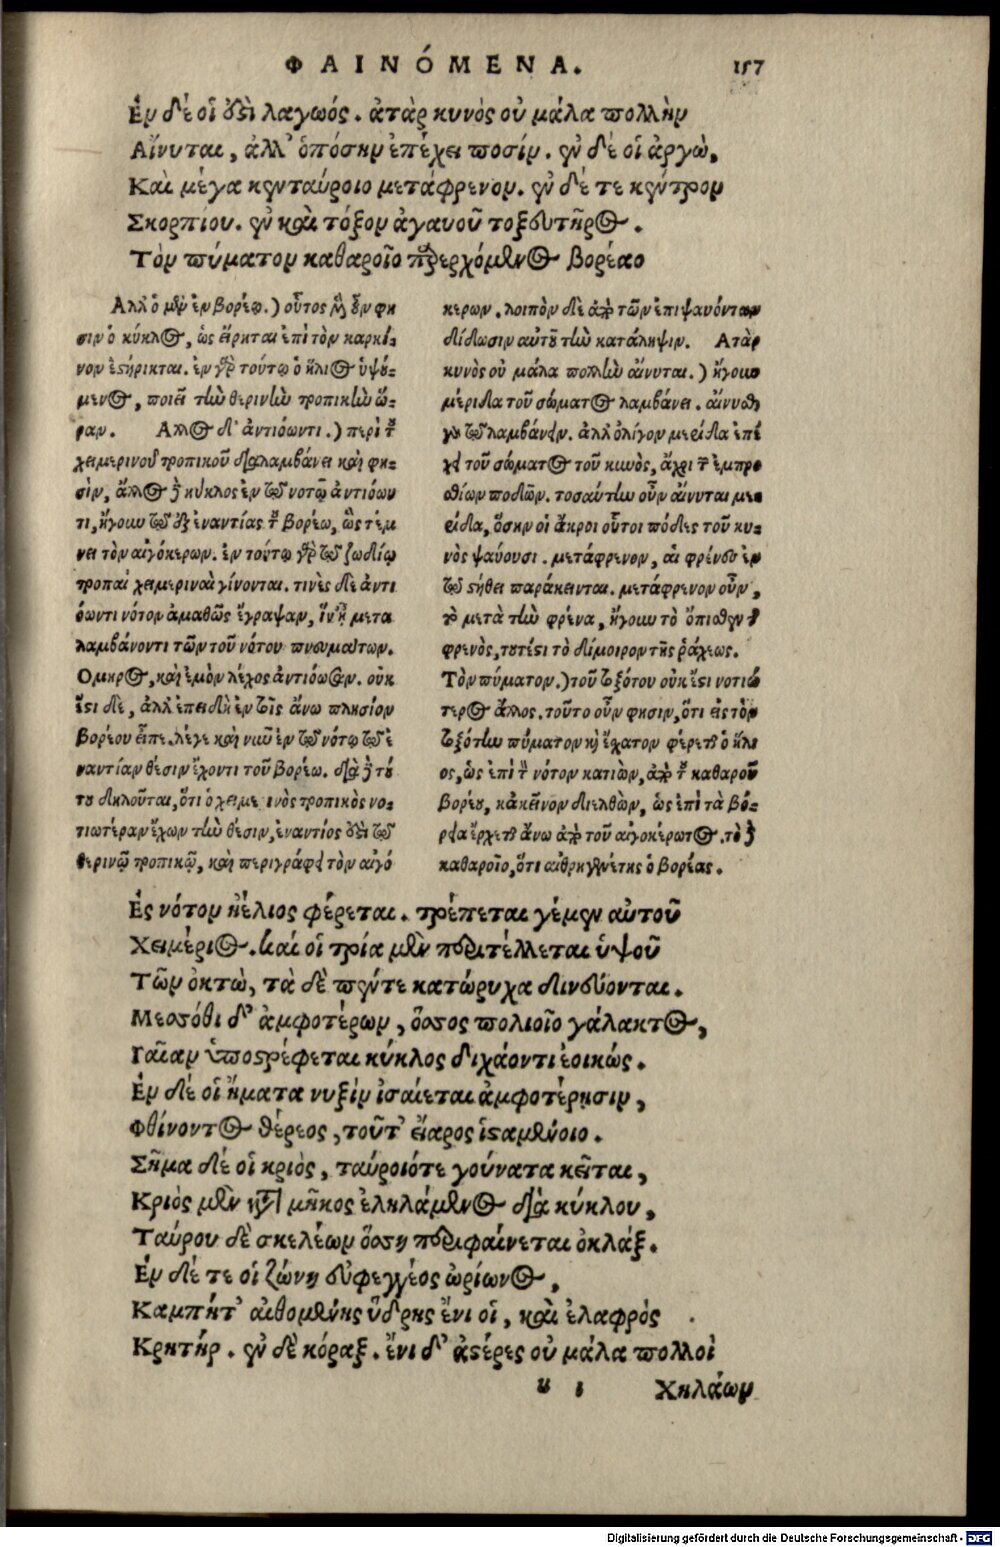 ΦΑΙΝΌΜΕΝΑ. 157
Ἐν δέ οἱ ἐστὶ λαγωός. ἀτὰρ κυνὸς οὐ μάλα πολλὴν
Αἴνυται, ἀλλ' ὁπόσην ἐπέχει ποσίν. ἐν δέ οἱ ἀργὼ,
Καὶ μέγα κενταύροιο μετάφρενον. ἐν δέ τε κέντρον
Σκορπίου. ἐν καὶ τόξον ἀγαυοῦ τοξευτῆρος.
Τὸν πύματον καθαροῖο παρερχόμενος βορέαο
Ἀλλ' ὁ μὲν ἐν βορέῳ.) οὗτος μὲν οὖν φη
σιν ὁ κύκλος, ὡς εἴρηται ἐπὶ τὸν καρκί-
νον ἐστήρικται. ἐν γὰρ τούτῳ ὁ ἥλιος ὑψού-
μενος, ποιεῖ τὴν θερινὴν τροπικὴν ὥ-
ραν. Ἄλλος δ' ἀντιόωντι.) περὶ τοῦ
χειμερινοῦ τροπικοῦ διαλαμβάνει καὶ φη-
σὶν, ἄλλος δὲ κύκλος ἐν τῷ νοτῷ ἀντιόων
τι, ἤγουν τῷ ἐξεναντίας τοῦ βορέω, ὃς τέμ
νει τὸν αἰγόκερων. ἐν τούτῳ γὰρ τῷ ζωδίῳ
τροπαὶ χειμεριναὶ γίνονται. τινὲς δὲ ἀντι
όωντι νότον ἀμαθῶς ἔγραψαν, ἵν' ᾖ μετα
λαμβάνοντι τῶν τοῦ νότου πνευμάτων.
Ὅμηρος, καὶ ἐμὸν λέχος ἀντιόωσαν. οὐκ
ἔστι δὲ, ἀλλ' ἐπειδὴ ἐν τοῖς ἄνω πλησίον
βορέου εἶπε. λέγει καὶ νῦν ἐν τῷ νότῳ τῷ ἐ
ναντίαν θέσιν ἔχοντι τοῦ βορέω. διὰ δὲ τού
του δηλοῦται, ὅτι ὁ χειμερινὸς τροπικὸς νο-
τιωτέραν ἔχων τὴν θέσιν, ἐναντίος ἐστὶ τῷ
θερινῷ τροπικῷ, καὶ περιγράφει τὸν αἰγό
κερων. λοιπὸν δὲ ἀπὸ τῶν ἐπιψαυόντων
δίδωσιν αὐτοῦ τὴν κατάληψιν. Ἀτὰρ
κυνὸς οὐ μάλα πολλὴν αἴνυται.) ἤγουν
μέριδα τοῦ σώματος λαμβάνει. αἴνυσθαι
γὰρ τὸ λαμβάνειν. ἀλλ' ὀλίγον μερίδα ἐπέ
χει τοῦ σώματος τοῦ κυνὸς, ἄχρι τῶν ἐμπρο
σθίων ποδῶν. τοσαύτην οὖν αἴνυται με-
ρίδα, ὅσην οἱ ἄκροι οὗτοι πόδες τοῦ κυ-
νὸς ψαύουσι. μετάφρενον, αἱ φρένες ἐν
τῷ στήθει παράκεινται. μετάφρενον οὖν,
τὸ μετὰ τὴν φρένα, ἤγουν τὸ ὄπισθεν τῆς
φρενὸς, τουτέστι τὸ δίμοιρον τῆς ῥάχεως.
Τὸν πύματον.) τοῦ τοξότου οὐκ ἔστι νοτιώ
τερος ἄλλος. τοῦτο οὖν φησιν, ὅτι εἰς τὸν
τοξότην πύματον καὶ ἔσχατον φέρεται ὁ ἥλι
ος, ὡς ἐπὶ τὸν νότον κατιὼν, ἀπὸ τοῦ καθαροῦ
βορέου, κἀκεῖνον διελθὼν, ὡς ἐπὶ τὰ βό-
ρεια ἔρχεται ἄνω ἀπὸ τοῦ αἰγοκέρωτος. τὸ δὲ
καθαροῖο, ὅτι αἰθρηγενέτης ὁ βορέας.
Ἐς νότον ἠέλιος φέρεται. τρέπεται γέμεν αὐτοῦ
Χειμέριος. καί οἱ τρία μὲν περιτέλλεται ὑψοῦ
Τῶν ὀκτὼ, τὰ δὲ πέντε κατώρυχα δινεύονται.
Μεσσόθι δ' ἀμφοτέρων, ὅσσος πολιοῖο γάλακτος,
Γαῖαν ὑποστρέφεται κύκλος διχάοντι ἐοικώς.
Ἐν δέ οἱ ἤματα νυξὶν ἰσαίεται ἀμφοτέρῃσιν,
Φθίνοντος θέρεος, τοῦτ' εἴαρος ἱσταμένοιο.
Σῆμα δέ οἱ κριὸς, ταύροιότε γούνατα κεῖται,
Κριὸς μὲν κατὰ μῆκος ἐληλάμενος διὰ κύκλου,
Ταύρου δὲ σκελέων ὅσση περιφαίνεται ὀκλάξ.
Ἐν δέ τε οἱ ζώνη εὐφεγγέος ὠρίωνος,
Καμπήτ' αἰθομένης ὕδρης ἔνι οἱ, καὶ ἐλαφρὸς
Κρητήρ. ἐν δὲ κόραξ. ἔνι δ' ἀστέρες οὐ μάλα πολλοὶ
u 1 Χηλάων
Digitalisierung gefördert durch die Deutsche Forschungsgemeinschaft - DFG